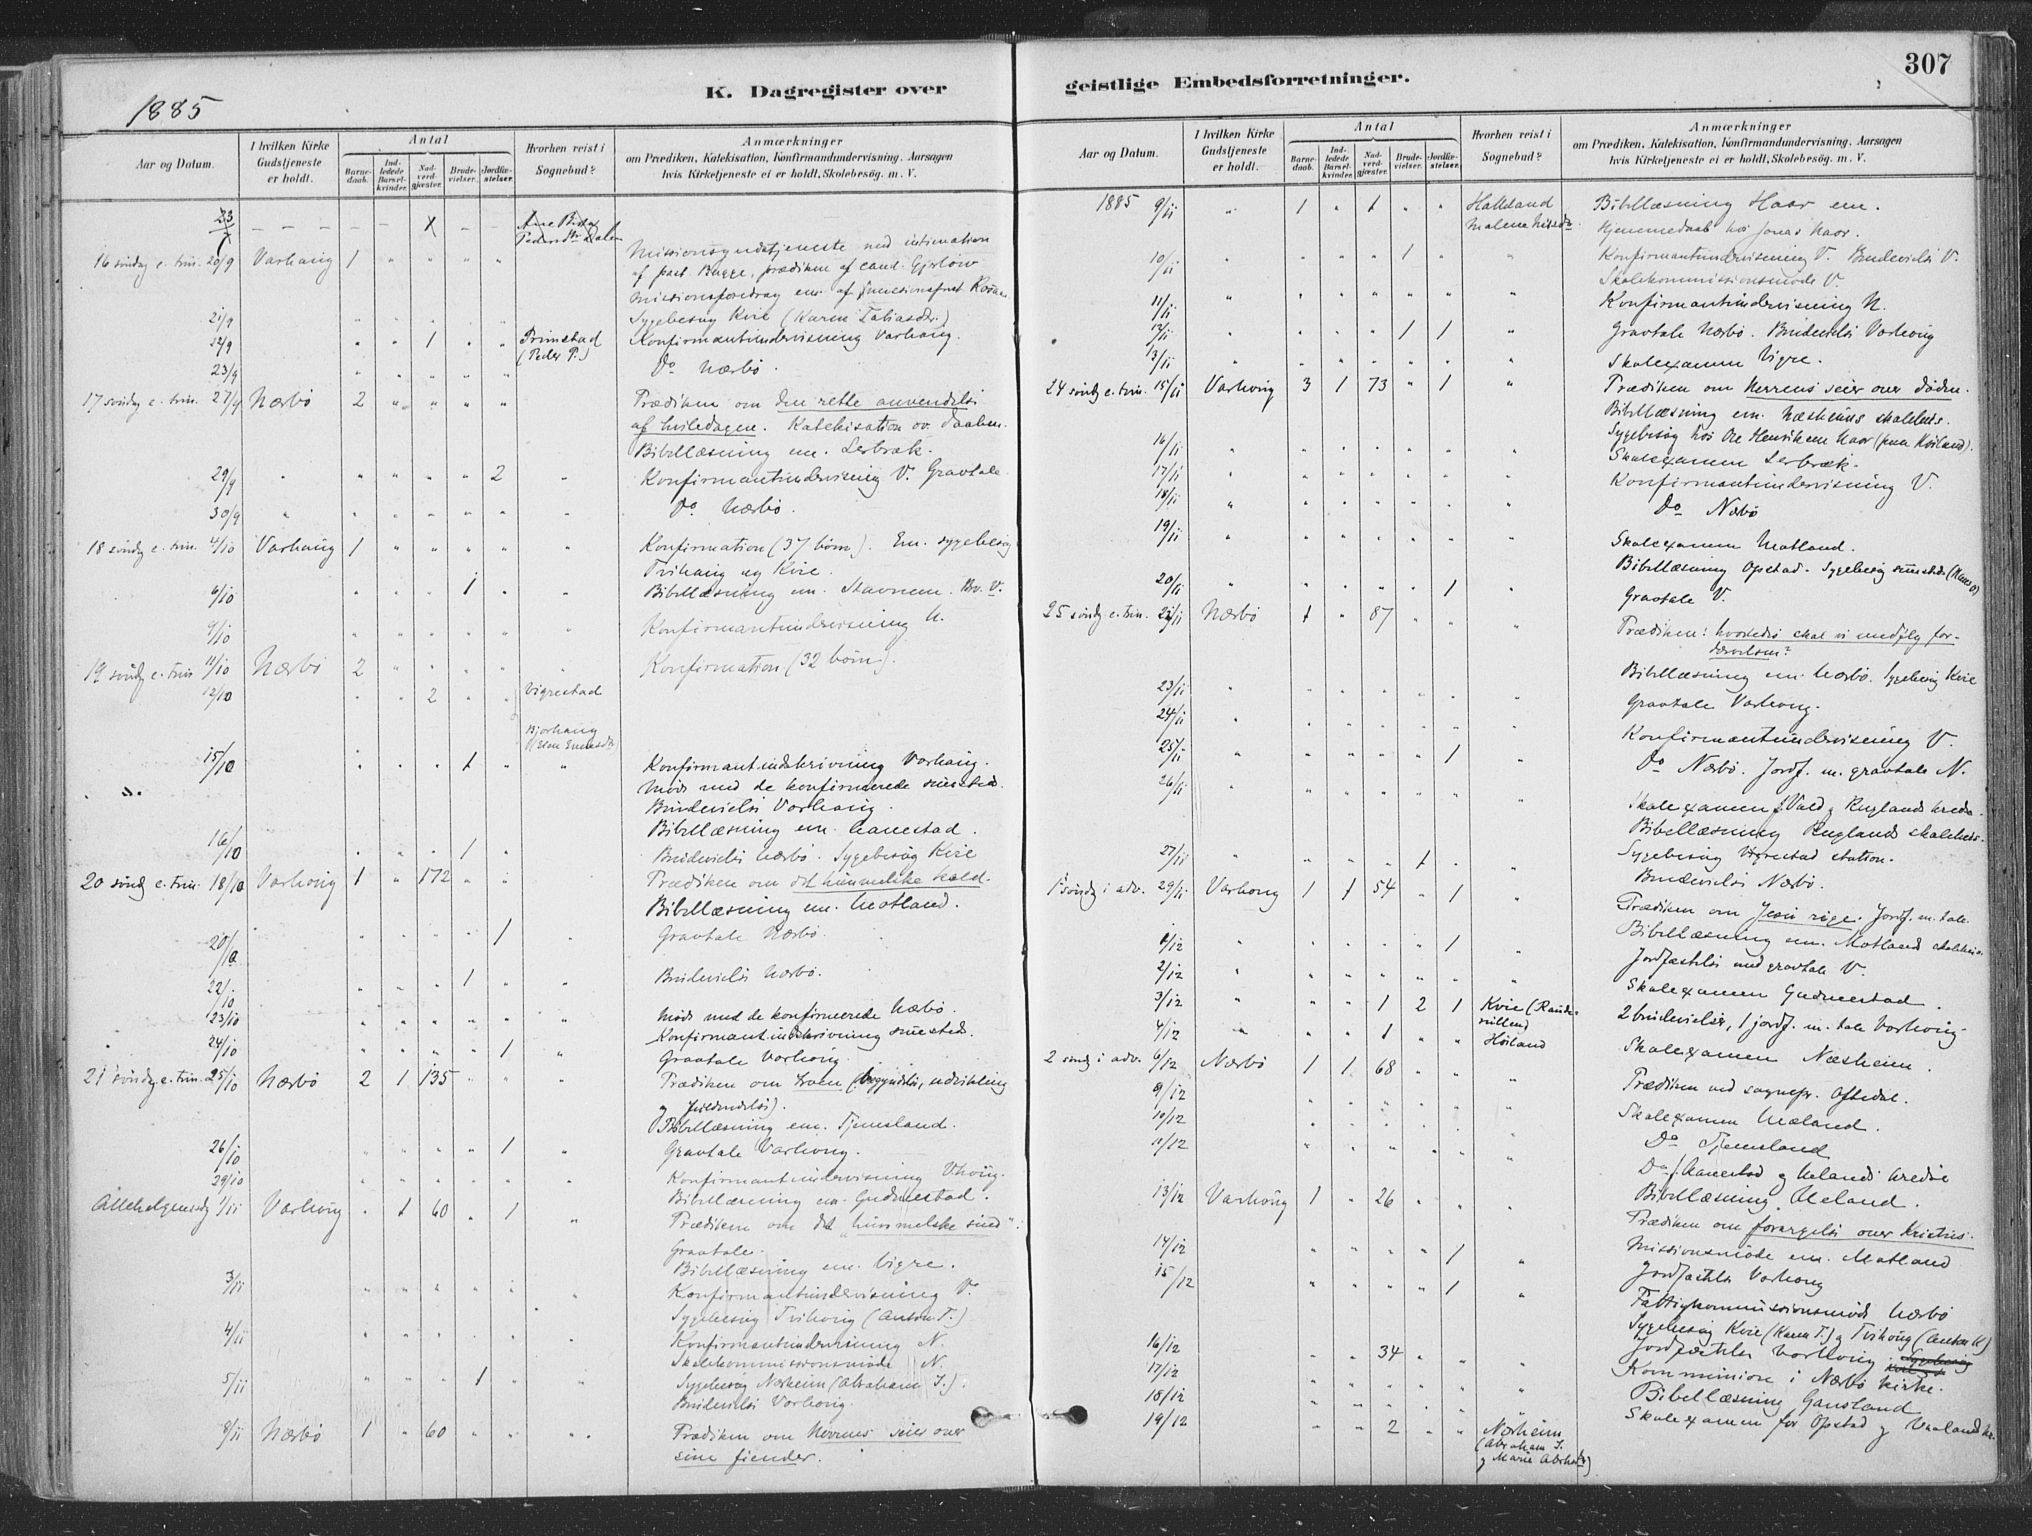 307
K. Dagregister over geistlige Embedsforretninger.
1885
Aar og Datum.
I hvilken Kirke Gudstjeneste er holdt.
Antal
Barnedaab.
Indledede Barselkvinder.
Nadverdgjæster.
Brudevielser.
Jordfæstelser.
Hvorhen reist i Sognebud?
Anmærkninger
om Prædiken, Katekisation, Konfirmandundervisning, Aarsagen
hvis Kirketjeneste ei er holdt, Skolebesøg. m. V.
16 søndag e. trin. 20/9 Varhaug 1 Missionsgudstjeneste med intimation
af past. Bugge, prædiken af cand. Gjerløw
Missionsforedrag em. af
21/9 Sygebesøg Kvie (Karen Tobiasdr.)
22/9 1 Grimstad (Peder P.) Konfirmantundervisning Varhaug.
23/9 Do Nærbø.
17 søndag e. trin. 27/9 Nærbø 2 Prædiken om den rette anvendelse
af hviledagen. Katekisation ov. Daaben.
Bibellæsning em. Lerbræk.
29/9 2 Konfirmantundervisning V. Gravtale
30/9 Do Nærbø.
18 søndag e. trin. 4/10 Varhaug 1 Konfirmation (37 børn). Em. sygebesøg
Tvihaug og Kvie.
6/10 1 Bibellæsning em. Stavnem. Brv. V.
9/10 Konfirmantundervisning N.
19 søndag e. trin. 11/10 Nærbø 2 Konfirmation (32 børn).
12/10 2 Vigrestad
Bjorhaug
15/10 1 Konfirmantindskrivning Varhaug.
Møde med de konfirmerede smsteds.
Brudevielse Varhaug.
Bibellæsning em. Hanestad.
16/10 1 Brudevielse Nærbø. Sygebesøg Kvie
20 søndag e. trin. 18/10 Varhaug 1 172 Prædiken om det himmelske kald.
Bibellæsning em. Motland.
20/10 1 Gravtale Nærbø.
22/10 1 Brudevielse Nærbø.
23/10 Møde med de konfirmerede Nærbø.
Konfirmantindskrivning smsteds.
24/10 1 Gravtale Varhoug.
21 søndag e. trin. 25/10 Nærbø 2 1 135 Prædiken om troen (begyndelse, udvikling
og fuldendelse).
Bibellæsning em. Tjemsland.
26/10 1 Gravtale Varhoug.
29/10 Konfirmantundervisning Vhoug.
Bibellæsning em. Gudmestad.
Allehelgensdag 1/11 Varhoug 1 60 1 Prædiken om det "himmelske sind".
Gravtale.
Bibellæsning em. Vigre.
3/11 Konfirmantundervisning V.
Sygebesøg Tvihoug (Anton T.)
4/11 Konfirmantundervisning N.
Skolekommissionsmøde N.
5/11 1 Sygebesøg Nærheim (Abraham I.).
Brudevielse Varhoug.
8/11 Nærbø 1 60 Prædiken om Herrens seier over
sine fiender.
Aar og Datum.
I hvilken Kirke Gudstjeneste er holdt.
Antal
Barnedaab.
Indledede Barselkvinder.
Nadverdgjæster.
Brudevielser.
Jordfæstelser.
Hvorhen reist i Sognebud?
Anmærkninger
om Prædiken, Katekisation, Konfirmandundervisning, Aarsagen
hvis Kirketjeneste ei er holdt, Skolebesøg. m. V.
1885 9/11 1 1 Hatteland Bibellæsning Haar em.
Malena Hjemmedaab hos Jonas Haar.
10/11 1 Konfirmantundervisning V. Brudevielse V.
Skolekommissionsmøde V.
11/11 Konfirmantundervisning N.
12/11 1 1 Gravtale Nærbø. Brudevielse Varhoug
13/11 Skolexamen Vigre.
24 søndag e. trin. 15/11 Varhoug 3 1 73 1 Prædiken om Herrens seier over døden.
Bibellæsning em. Næsheims skolehus.
16/11 Sygebesøg hos Ole Henriksen Haar
17/11 Skolexamen Lerbræk.
18/11 Konfirmantundervisning V.
19/11 Do Nærbø
Skolexamen Motland.
Bibellæsning Opstad. Sygebesøg smsteds
20/11 1 Gravtale V.
25 søndag e. trin. 22/11 Nærbø 1 87 Prædiken: hvorledes skal vi undfly for-
dærvelsen?
Bibellæsning em. Nærbø. Sygebesøg Kvie
23/11 Gravtale Varhoug.
24/11 Konfirmantundervisning V.
25/11 1 Do Nærbø. Jordf. m. gravtale N.
26/11 Skolexamen f. Vold og Ruglands kredse
Bibellæsning Ruglands skolehus.
27/11 1 Sygebesøg Vigrestad station.
Brudevielse Nærbø.
1 søndag i adv. 29/11 Varhoug 1 1 54 1 Prædiken om Jesu rige. Jordf. m. tale.
Bibellæsning em. Motlands skolehus.
1/12 1 Jordfæstelse med gravtale V.
2/12 Skolexamen Gudmestad.
3/12 1 2 1 Kvie 2 brudevielser, 1 jordf. m. tale Varhoug.
4/12 1 Høiland Skolexamen Næsheim.
2 sønd. i adv. 6/12 Nærbø 1 1 68 Prædiken ved sognepr. Oftedal.
9/12 Skolexamen Næland.
10/12 Do Tjemsland
11/12 Do f. Hanestad og Uelands kredse
Bibellæsning Ueland.
13/12 Varhoug 1 26 Prædiken om forargelse over Kristus.
Missionsmøde em. Motland
14/12 1 Jordfæstelse Varhoug
15/12 1 Fattigkommissionsmøde Nærbø
Sygebesøg Kvie (Karen T.) og Tvihoug
Jordfæstelse Varhoug
16/12 34 Kommunion i Nærbø kirke.
17/12 Bibellæsning Gausland
18/12 Skolexamen for Opstad og
19/12 2 Nærheim
(Abraham I.